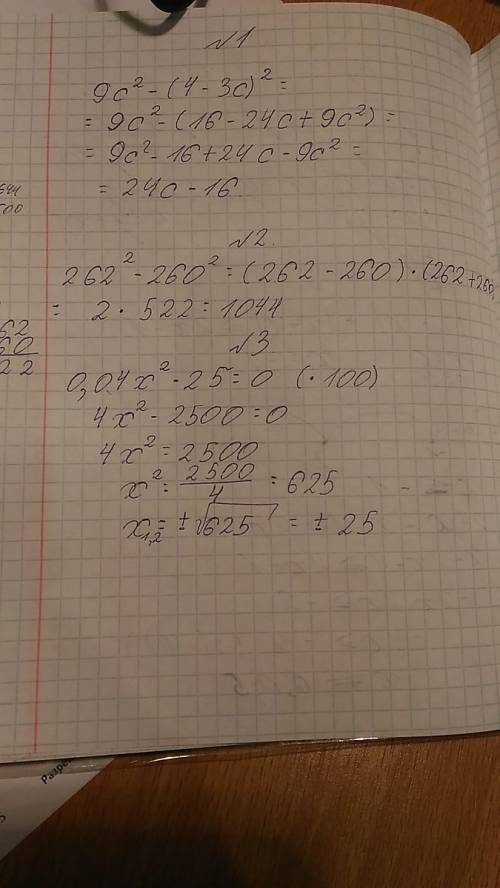 №1
9c² - (4 - 3c)² =
= 9c² - (16 - 24c + 9c²) =
= 9c² - 16 + 24c - 9c² =
= 24c - 16
№2
262² - 260² = (262 - 260) · (262 + 260
= 2 · 522 = 1044
№3
0,04x² - 25 = 0 (· 100)
4x² - 2500 = 0
4x² = 2500
x² = 2500/4 = 625
x₁,₂ = ± √625 = ± 25
62
60
22